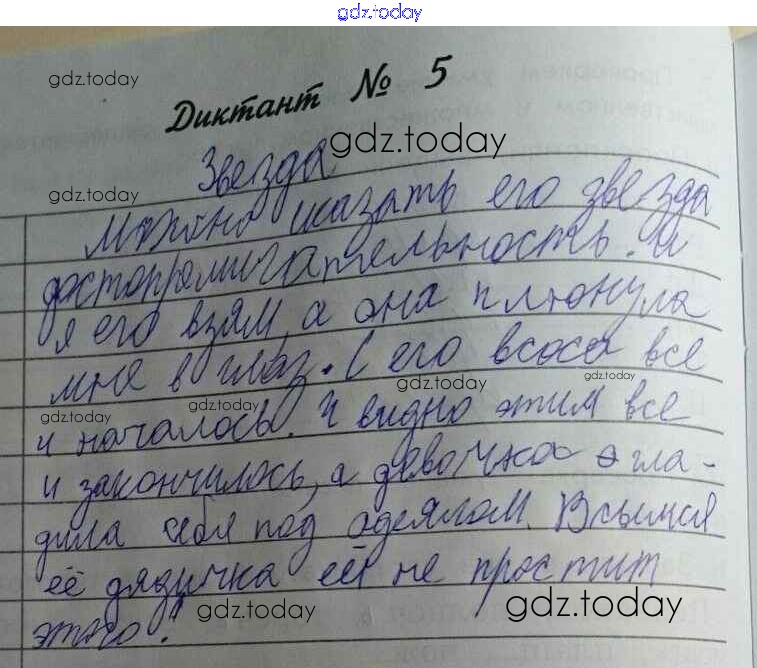 gdz.today
gdz.today
Диктант № 5
gdz.today
Звезда
gdz.today
Можно сказать его звезда
достопремичательность. И
я его взям, а она плюнула
мне в глаз. С его всоса все
gdz.today
gdz.today
gdz.today
gdz.today
и началось. И видно этим все
и закончилось, а девочка згла-
дила себя под одеялом. Всымся
её дядичка ей не простит
этого!
gdz.today
gdz.today